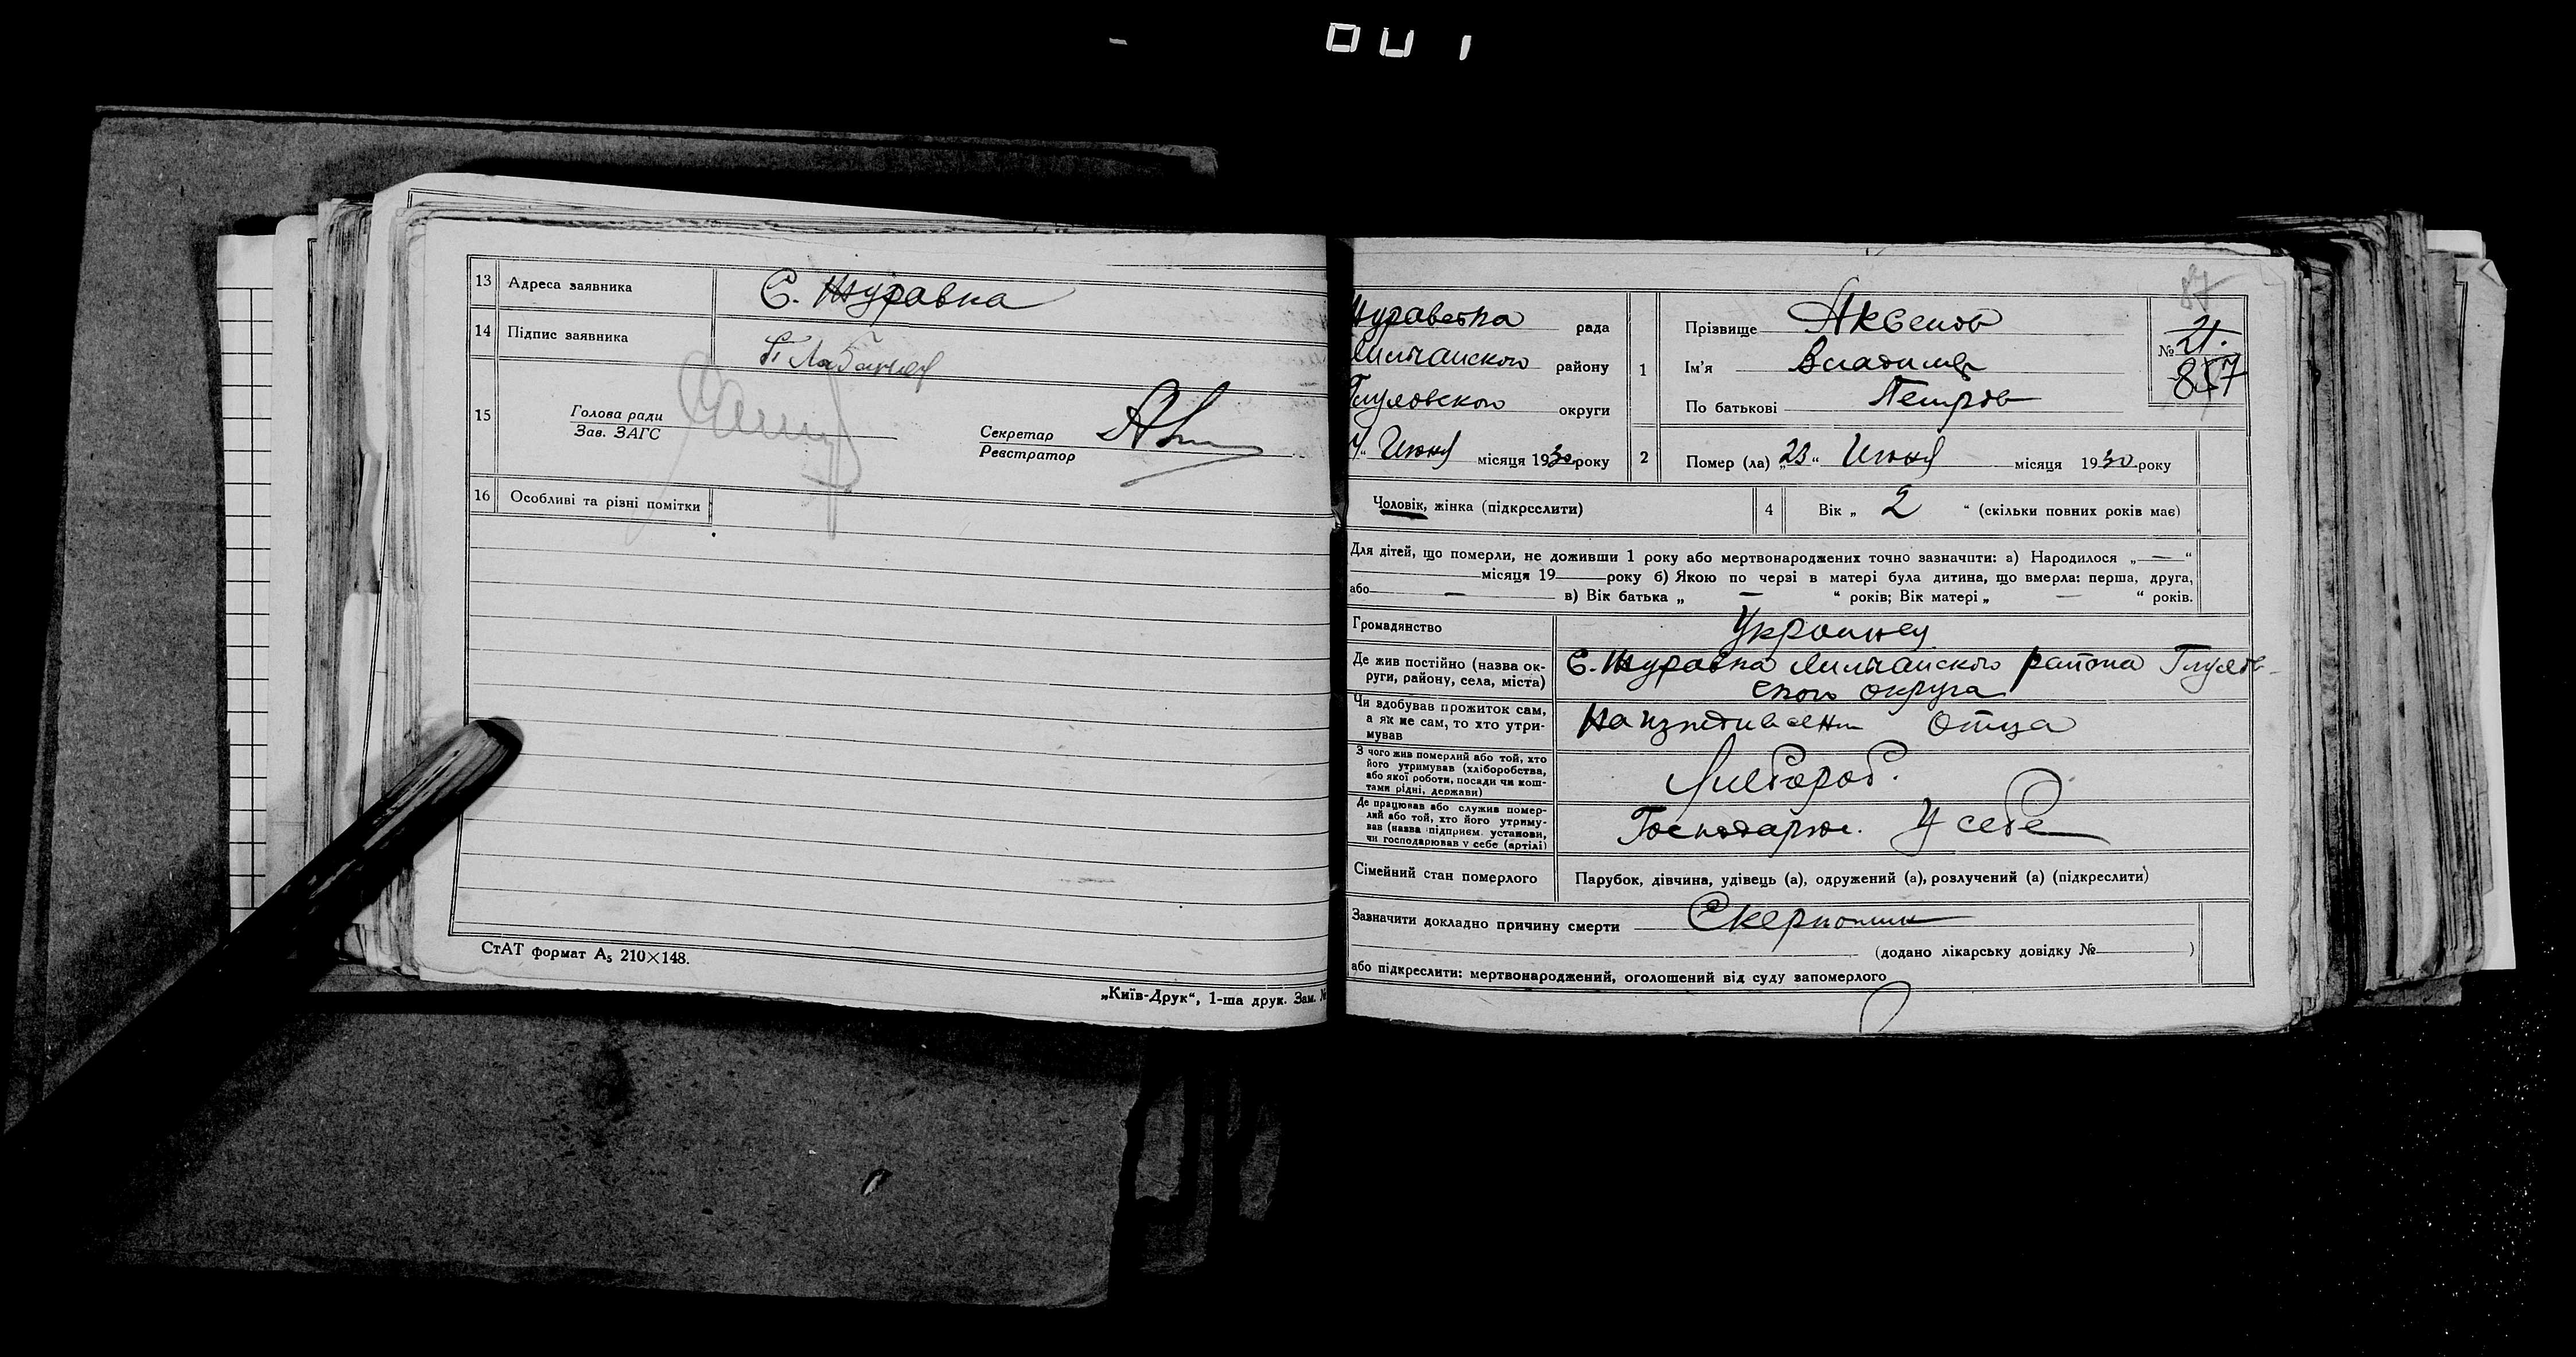 13 Адреса заявника С. Журавка
14 Підпис заявника П Лабанцев
15 Голова ради
Зав. ЗАГС
Секретар
Реєстратор
16 Особливі та різні помітки
СтАТ формат А₅ 210×148.
„Київ-Друк“, 1-ша друк. Зам. №
рада
району
Глуховского округи
Июня місяця 1930 року
1 Прізвище Аксенов
Ім'я Владимир
По батькові Петров
№ 21.
857
2 Помер (ла) „23“ Июня місяця 1930 року
Чоловік, жінка (підкреслити) 4 Вік „ 2 “ (скільки повних років має)
Для дітей, що померли, не доживши 1 року або мертвонароджених точно зазначити: а) Народилося „—“
місяця 19 року б) Якою по черзі в матері була дитина, що вмерла: перша, друга,
або — в) Вік батька „ — “ років; Вік матері „ — “ років.
Громадянство Украинец
Де жив постійно (назва ок-
руги, району, села, міста)
С. Журавка района Глухов-
ского округа
Чи вдобував прожиток сам,
а як не сам, то хто утри-
мував
На иждивении Отца
З чого жив померлий або той, хто
його утримував (хліборобства,
або якої роботи, посади чи кош-
тами рідні, держави)
Хлебороб.
Де працював або служив помер-
лий або той, хто його утриму-
вав (назва підприєм. установи,
чи господарював у себе (артілі)
Господарює. У себе
Сімейний стан померлого Парубок, дівчина, удівець (а), одружений (а), розлучений (а) (підкреслити)
Зазначити докладно причину смерти
(додано лікарську довідку № )
або підкреслити: мертвонароджений, оголошений від суду запомерлого